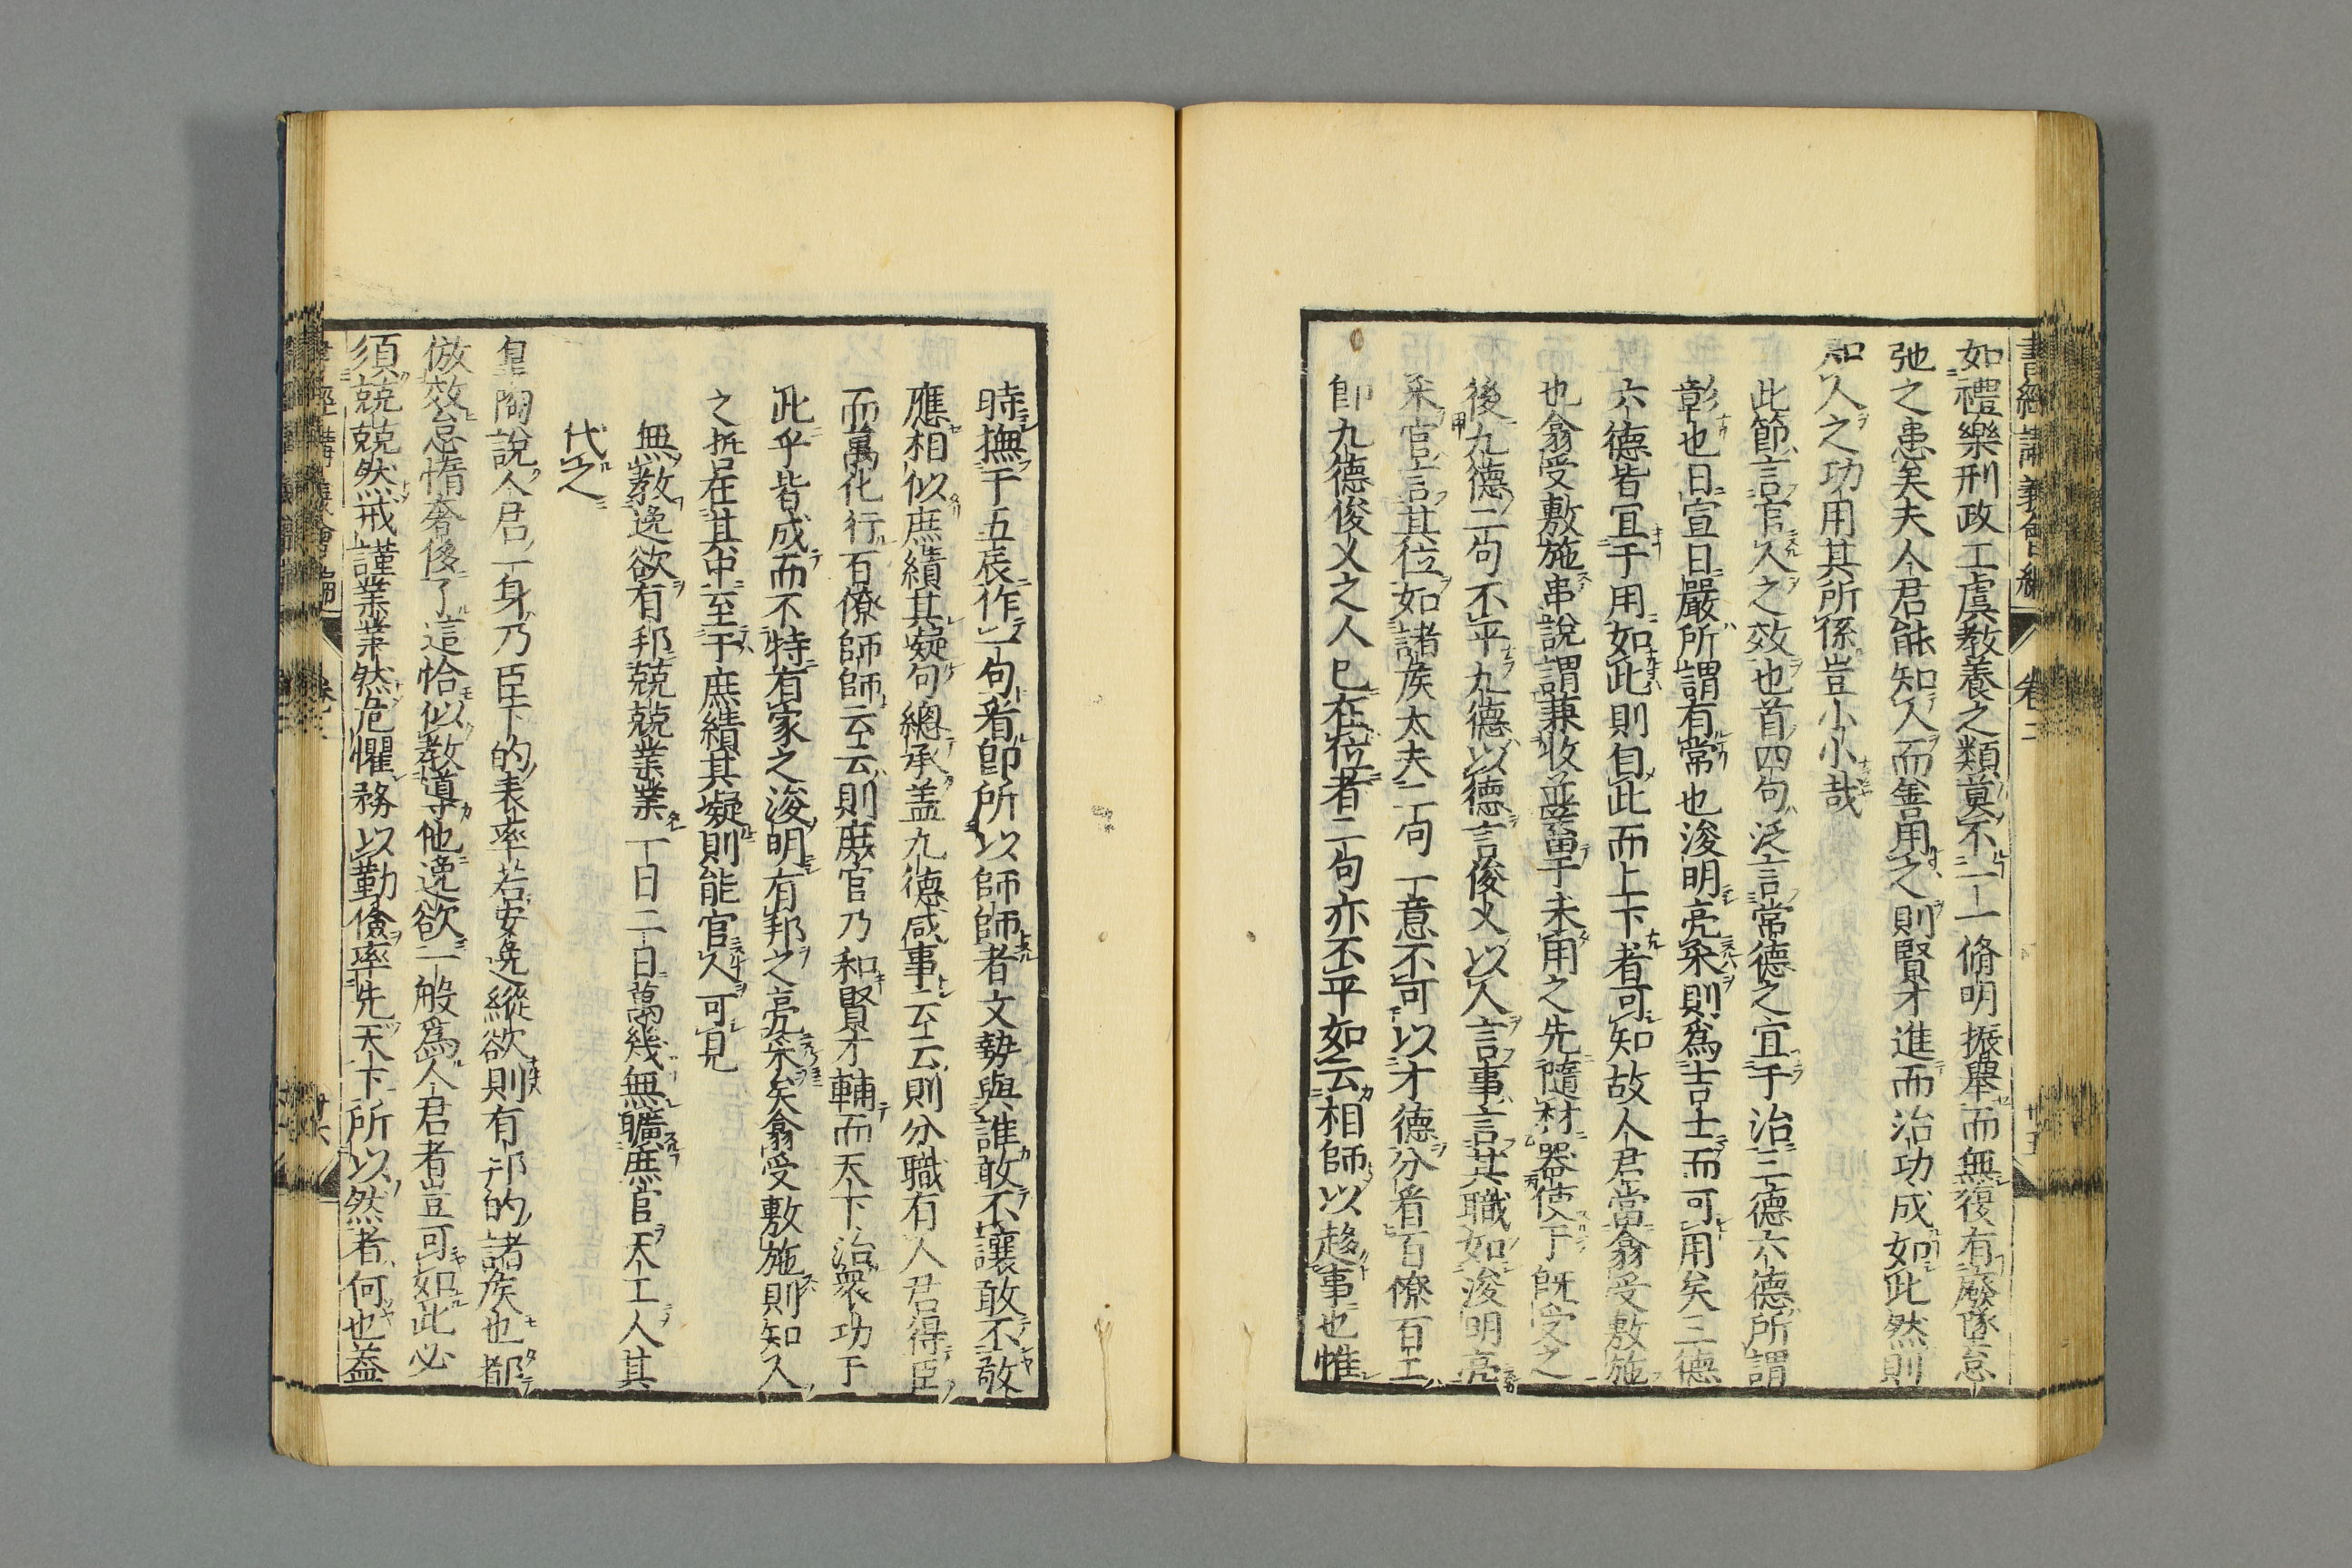 書經講義會編 卷二 廿五
如禮樂刑政工虞教養之類莫不一一脩明振舉而無復有廢墜怠
弛之患矣夫人君能知人而善用之則賢才進而治功成如此然則
知人之功用其所係豈小小哉
此節言官人之效也首四句泛言常德之宜于治三德六德所謂
彰也日宣日嚴所謂有常也浚明亮采則爲吉士而可用矣三德
六德皆宜于用如此則自此而上下者可知故人君當翕受敷施
也翕受敷施串說謂兼收並蓄于未用之先隨材器使于旣受之
後九德二句不平九德以德言俊乂以人言事言其職如浚明亮
采官言其位如諸矦大夫二句一意不可以才德分看百僚百工
卽九德俊乂之人已在位者二句亦不平如云相師以趍事也惟
時撫于五辰作一句看卽所以師師者文勢與誰敢不讓敢不敬
應相似庶績其凝句總承盖九德咸事云云則分職有人君得臣
而萬化行百僚師師云云則庶官乃和賢才輔而天下治衆功于
此乎皆成而不特有家之浚明有邦之亮采矣翕受敷施則知人
之哲在其中至于庶績其凝則能官人可見
無教逸欲有邦兢兢業業一日二日萬幾無曠庶官天工人其
代之
皇陶說人君一身乃臣下的表率若安逸縱欲則有邦的諸矦也都
倣效怠惰奢侈了這恰似教導他逸欲一般爲人君者豈可如此必
須兢兢然戒謹業業然危懼務以勤儉率先天下所以然者何也蓋